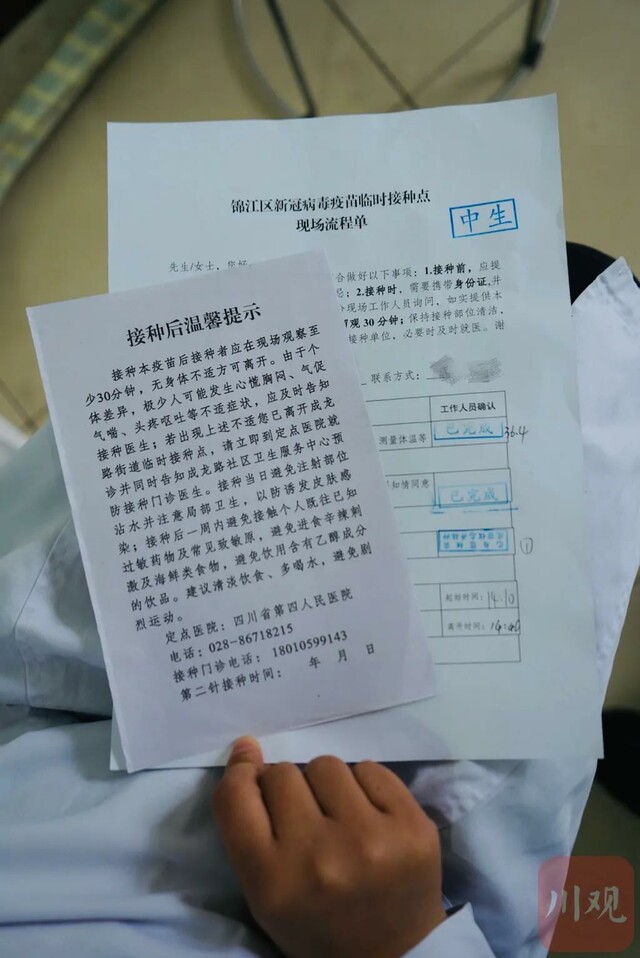 锦江区新冠病毒疫苗临时接种点
现场流程单
中生
先生/女士，您好
合做好以下事项：1.接种前，应提
2.接种时，需要携带身份证,并
现场工作人员询问，如实提供本
观30分钟；保持接种部位清洁，
接种单位，必要时及时就医。谢
联系方式：
工作人员确认
测量体温等
已完成
36.4
知情同意
已完成
①
起始时间：14:10
离开时间：
接种后温馨提示
接种本疫苗后接种者应在现场观察至
少30分钟，无身体不适方可离开。由于个
体差异，极少人可能发生心慌胸闷、气促
气喘、头疼呕吐等不适症状，应及时告知
接种医生；若出现上述不适您已离开成龙
路街道临时接种点，请立即到定点医院就
诊并同时告知成龙路社区卫生服务中心预
防接种门诊医生。接种当日避免注射部位
沾水并注意局部卫生，以防诱发皮肤感
染；接种后一周内避免接触个人既往已知
过敏药物及常见致敏原，避免进食辛辣刺
激及海鲜类食物，避免饮用含有乙醇成分
的饮品。建议清淡饮食、多喝水，避免剧
烈运动。
定点医院：四川省第四人民医院
电话：028-86718215
接种门诊电话：18010599143
第二针接种时间： 年 月 日
川观